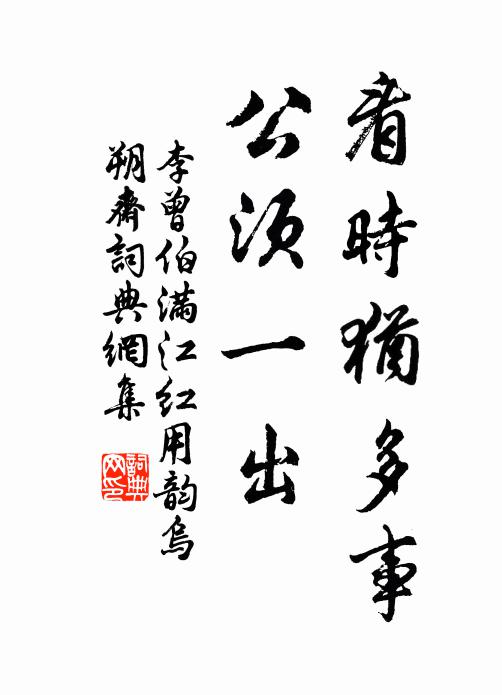 看時猶多事
公須一出
李曾伯滿江紅用韵烏
朔齋詞典網集
詞典网印